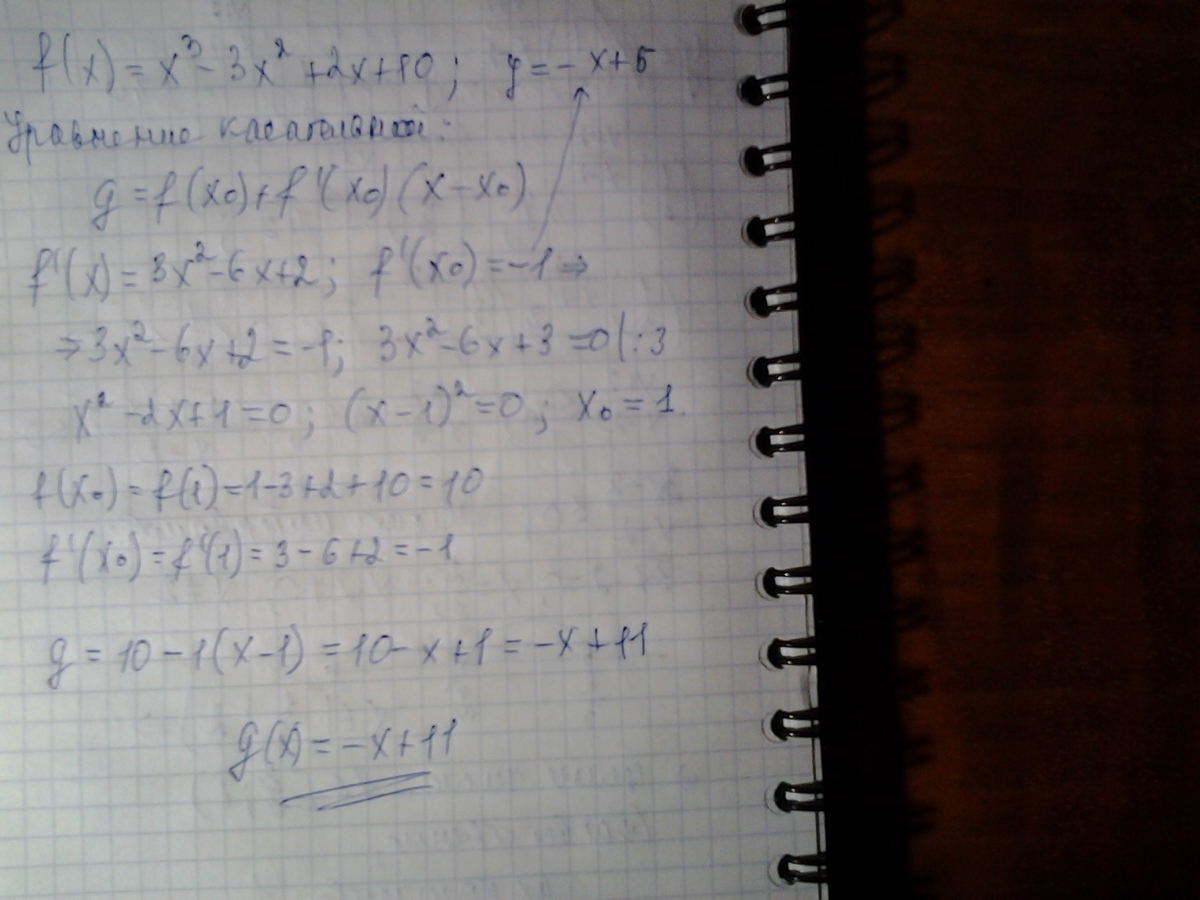 f(x) = x³ - 3x² + 2x + 10; y = - x + 5
Уравнение касательной:
g = f(x₀) + f'(x₀)(x - x₀)
f'(x) = 3x² - 6x + 2; f'(x₀) = -1 ⇒
⇒ 3x² - 6x + 2 = -1; 3x² - 6x + 3 = 0 | : 3
x² - 2x + 1 = 0; (x - 1)² = 0; x₀ = 1.
f(x₀) = f(1) = 1 - 3 + 2 + 10 = 10
f'(x₀) = f'(1) = 3 - 6 + 2 = -1
g = 10 - 1(x - 1) = 10 - x + 1 = -x + 11
g(x) = -x + 11